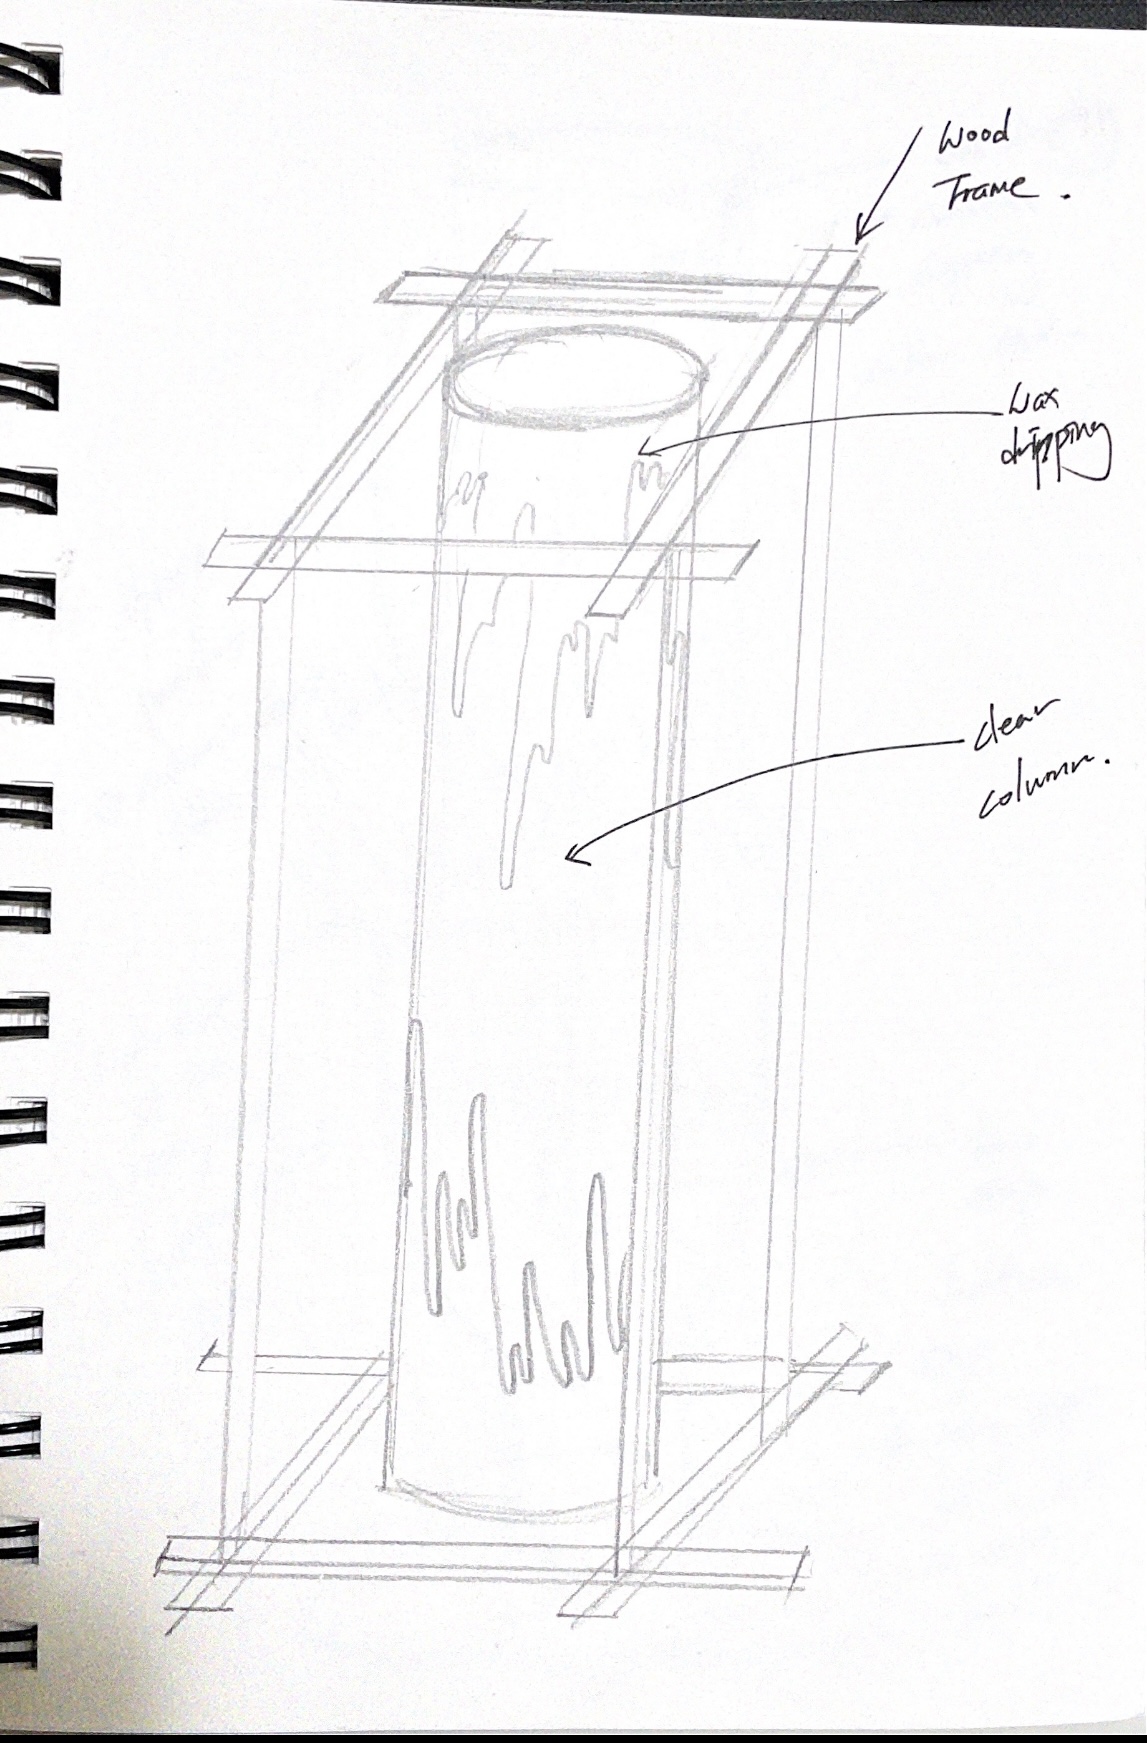 Wood
Frame.
Wax
dripping
clear
column.